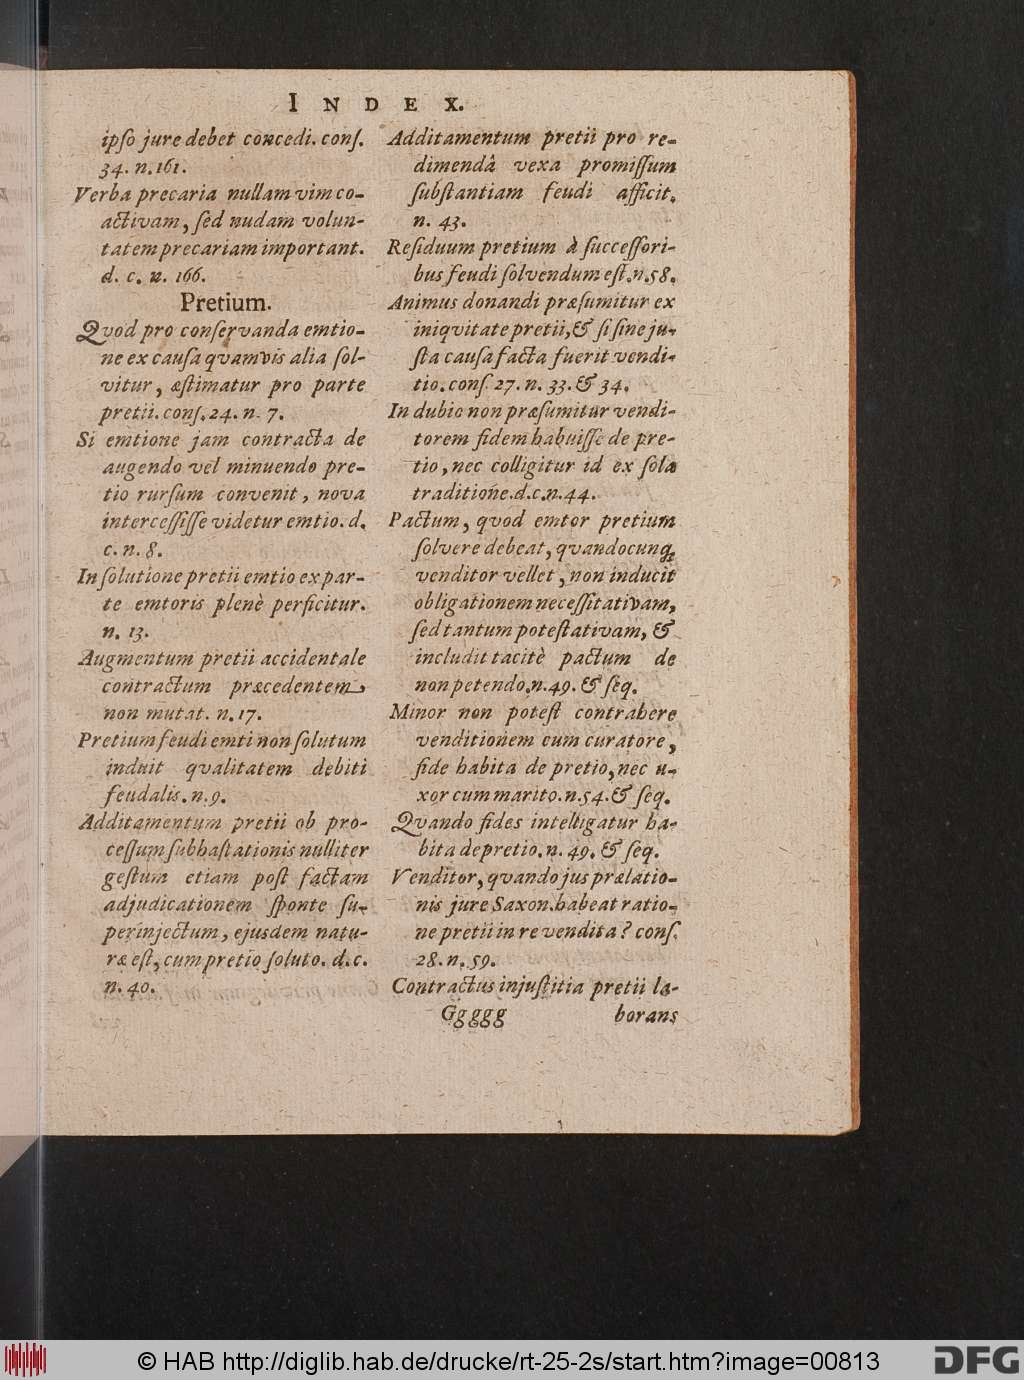 INDEX.
ipſo jure debet concedi. conſ.
34. n. 161.
Verba precaria nullam vim co-
activam, ſed nudam volun-
tatem precariam important.
d. c. n. 166.
Pretium.
Quod pro conſervanda emtio-
ne ex cauſa qvamvis alia ſol-
vitur, æſtimatur pro parte
pretii. conſ. 24. n. 7.
Si emtione jam contracta de
augendo vel minuendo pre-
tio rurſum convenit, nova
interceſſiſſe videtur emtio. d.
c. n. 8.
In ſolutione pretii emtio ex par-
te emtoris plenè perficitur.
n. 13.
Augmentum pretii accidentale
contractum præcedentem
non mutat. n. 17.
Pretium feudi emti non ſolutum
induit qvalitatem debiti
feudalis. n. 9.
Additamentum pretii ob pro-
ceſſum ſubhaſtationis nulliter
geſtum etiam poſt factam
adjudicationem ſponte ſu-
perinjectum, ejusdem natu-
ræ eſt, cum pretio ſoluto. d. c.
n. 40.
Additamentum pretii pro re-
dimendâ vexa promiſſum
ſubſtantiam feudi afficit.
n. 43.
Reſiduum pretium à ſucceſſori-
bus feudi ſolvendum eſt. n. 58.
Animus donandi præſumitur ex
iniqvitate pretii, & ſi ſine ju-
ſta cauſa facta fuerit vendi-
tio. conſ. 27. n. 33. & 34.
In dubio non præſumitur vendi-
torem fidem habuiſſe de pre-
tio, nec colligitur id ex ſola
traditione. d. c. n. 44.
Pactum, qvod emtor pretium
ſolvere debeat, qvandocunq;
venditor vellet, non inducit
obligationem neceſſitativam,
ſed tantum poteſtativam, &
includit tacitè pactum de
non petendo. n. 49. & ſeq.
Minor non poteſt contrahere
venditionem cum curatore,
fide habita de pretio, nec u-
xor cum marito. n. 54. & ſeq.
Qvando fides intelligatur ha-
bita de pretio. n. 49. & ſeq.
Venditor, qvando jus prælatio-
nis jure Saxon. habeat ratio-
ne pretii in re vendita? conſ.
28. n. 59.
Contractus injuſtitia pretii la-
Gg ggg borans
© HAB http://diglib.hab.de/drucke/rt-25-2s/start.htm?image=00813
DFG